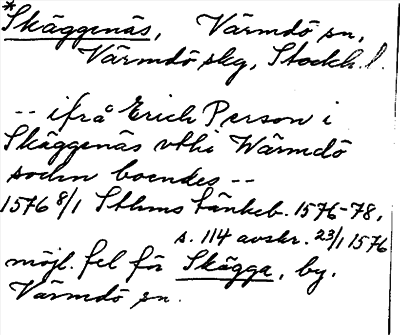 *Skäggenäs, Värmdö sn,
Värmdö skg, Stockh. l.
-- ifrå Erich Person i
Skäggenäs vthi Wärmdö
sochn boendes --
1576 8/1 Sthms tänkeb. 1576-78,
s. 114 avskr. 23/1 1576
möjl. fel för Skägga, by,
Värmdö sn.